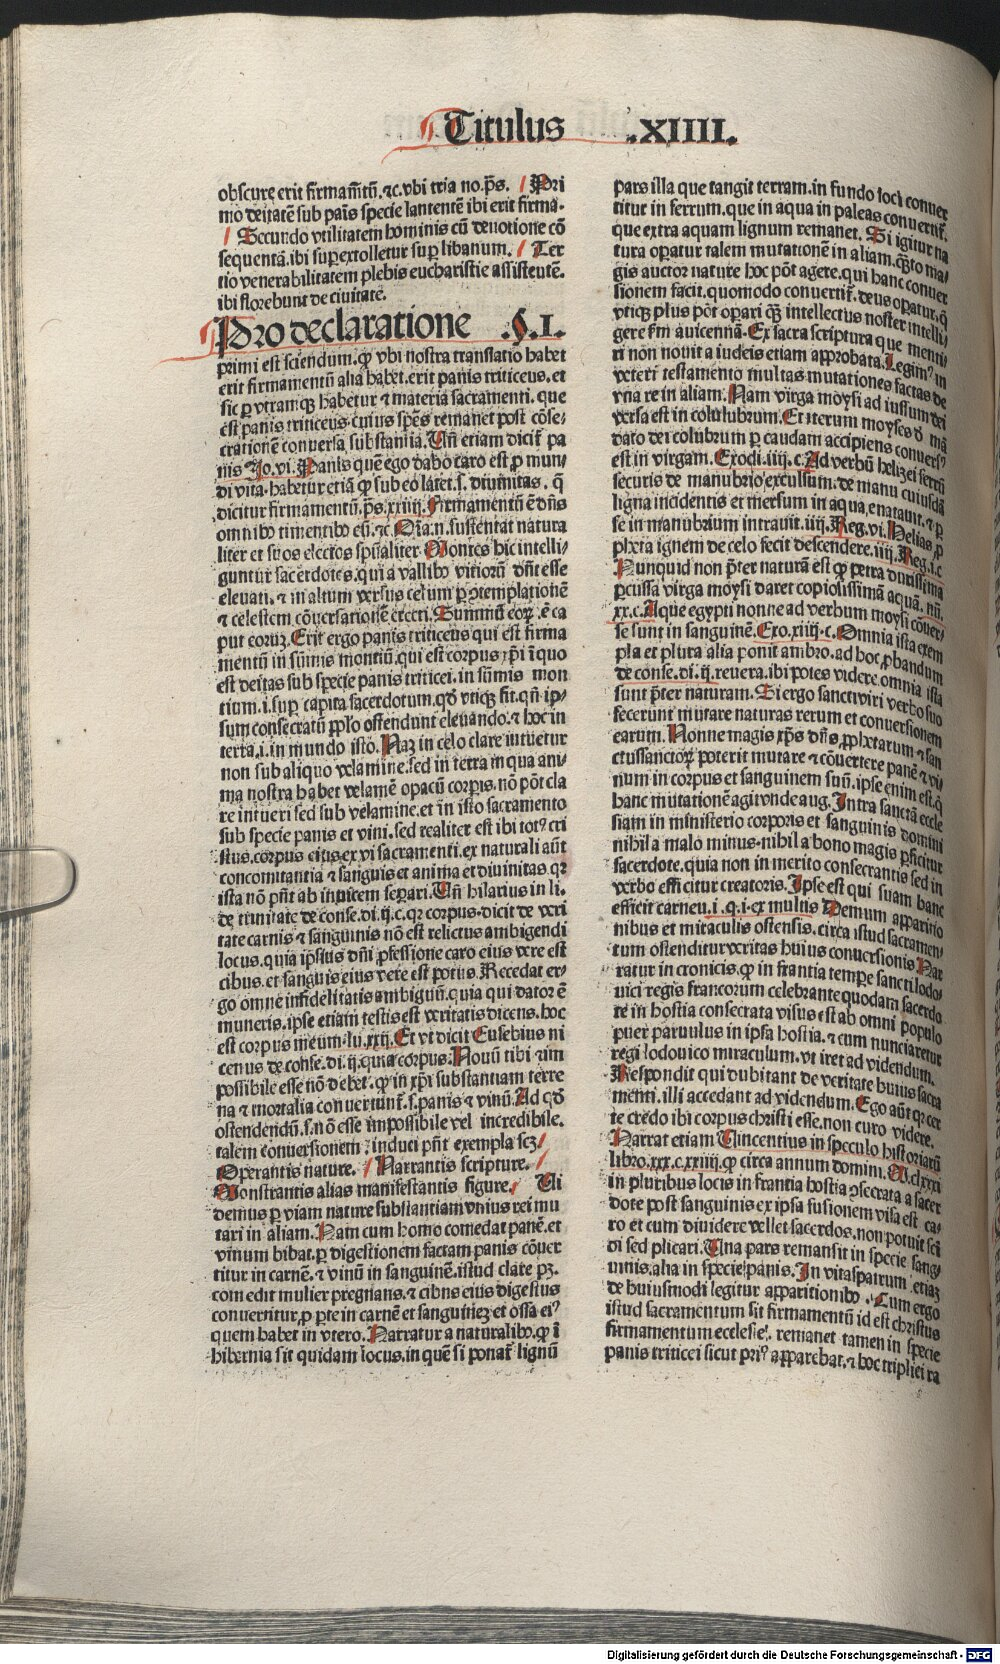 Titulus .XIIII.
obscure erit firmam̄tū.⁊c.vbi tria no.p̄s. Pri
mo deitatē sub pais specie lantentē ibi erit firma.
Secundo vtilitatem hominis cū deuotione cō
sequentā.ibi sup̲extolletur sup̲ libanum. Ter
tio venerabilitatem plebis eucharistie assistentē.
ibi florebunt de ciuitate.
Pro declaratione .§.I.
primi est sciendum.ꝙ vbi nostra translatio habet
erit firmamentū alia habet.erit panis triticeus.et
sic p̲ vtramqꝫ habetur ⁊ materia sacramenti.que
est panis triticeus.cuius sp̄es remanet post cōse-
crationē conuersa substantia.Un̄ etiam dicit̄ pa
nis Io.vi.Panis quē ego dabo caro est p̲ mun/
di vita.habetur etiā ꝙ sub eo latet.s.diuinitas. q̄
dicitur firmamentū.p̄s.xxiiij.Firmamentū ē dn̄s
omnibꝰ timentibꝰ eū.⁊c.Dia.n.sustentat natura
liter et suos electos sp̄ualiter.Montes hic intelli/
guntur sacerdotes.qui a vallibꝰ vitiorū dn̄t esse
eleuati.⁊ in altum versus celum p̲ ꝯtemplationē
⁊ celestem cōuersationē erecti.Summū eoꝝ.ē ca
put eoruꝫ.Erit ergo panis triticeus qui est firma
mentū in sūmis montiū.qui est corpus xp̄i ī quo
est deitas sub specie panis triticei.in sūmis mon
tium.i.sup̲ capita sacerdotum.qd̄ vtiqꝫ fit.qn̄ ip/
sum consecratū pp̲lo ostendunt eleuando.⁊ hoc in
terra.i.in mundo isto.Naꝫ in celo clare intuetur
non sub aliquo velamine.sed in terra in qua ani/
ma nostra habet velamē opacū corp̲is.nō pōt cla
re intueri sed sub velamine.et in isto sacramento
sub specie panis et vini.sed realiter est ibi totꝰ cri
stus.corpus eius ex vi sacramenti.ex naturali aūt
concomitantia ⁊ sanguis et anima et diuinitas.qꝛ
ista nō pn̄t ab inuicem sep̲ari.Un̄ hilarius in li.
de trinitate de conse.di.ij.c.qꝛ corpus.dicit de veri
tate carnis ⁊ sanguinis nō est relictus ambigendi
locus.quia ipsius dn̄i p̲fessione caro eius vere est
cibus.et sanguis eius vere est potus.Recedat er-
go omne infidelitatis ambiguū.quia qui dator ē
muneris.ipse etiam testis est veritatis dicens.hoc
est corpus meum.lu.xxij.Et vt dicit Eusebius ni
cenus de conse.di.ij.quia corpus.Nouū tibi ⁊ im
possibile esse nō debet.ꝙ in xp̄i substantiam terre
na ⁊ mortalia conuertunt̄.s.panis ⁊ vinū.Ad qd̄
ostendendū.s.nō esse impossibile vel incredibile.
talem conuersionem induci pn̄t exempla scꝫ
Operantis nature. Narrantis scripture.
Monstrantis alias manifestantis figure. Ui
demus p̲ viam nature substantiam vnius rei mu
tari in aliam.Nam cum homo comedat panē.et
vinum bibat.p̲ digestionem factam panis cōuer
titur in carnē.⁊ vinū in sanguinē.istud clare pꝫ.
com edit mulier pregnans.⁊ cibus eius digestus
conuertitur p̲ p̲te in carnē et sanguineꝫ et ossa eiꝰ
quem habet in vtero.Narratur a naturalibꝰ.ꝙ ī
hibernia sit quidam locus.in quē si ponat̄ lignū
pars illa que tangit terram.in fundo loci conuer
titur in ferrum.que in aqua in paleas conuertit̄.
que extra aquam lignum remanet.Si igitur na
tura op̲atur talem mutationē in aliam.qͣꝫto ma/
gis auctor nature hoc pōt agere.qui hanc conuer
sionem facit.quomodo conuertit̄.deus op̲atur.q̄
vtiqꝫ plus pōt op̲ari qꝫ intellectus noster intelli/
gere fm̄ auicennā.Ex sacra scriptura que menti/
ri non nouit a iudeis etiam app̲robata.Legimꝰ in
veteri testamento multas mutationes factas de
vna re in aliam.Nam virga moysi ad iussum dei
versa est in colulubrum.Et iterum moyses d̄ mā
dato dei colubrum p̲ caudam accipiens conuersꝰ
est in virgam.Exodi.iiij.c.Ad verbū helizei ferrū
securis de manubrio excussum.de manu cuiusdā
ligna incidentis et mersum in aqua.enatauit.⁊ p̲
se in manubrium intrauit.iiij.Reg.vi.Helias.p̲
pheta ignem de celo fecit descendere.iiij.Reg.i.c
Nunquid non p̄ter naturā est ꝙ petra durissima
p̲cussa virga moysi daret copiosissimā aquā.nū.
xx.c.Aque egypti nonne ad verbum moysi cōuer/
se sunt in sanguinē.Exo.xiiij.c.Omnia ista exem
pla et plura alia ponit ambro.ad hoc p̲bandum
de conse.di.ij.reuera.ibi potes videre.omnia ista
sunt p̄ter naturam.Si ergo sancti viri verbo suo
fecerunt mutare naturas rerum et conuersionem
earum.Nonne magis xp̄s dn̄s p̲phetarum ⁊ san
ctussanctoꝝ poterit mutare ⁊ cōuertere panē ⁊ vi/
num in corpus et sanguinem suū.ipse enim est.q̄
hanc mutationē agit vnde aug.Intra sanctā eccle
siam in ministerio corporis et sanguinis domini
nihil a malo minus.nihil a bono magis p̲ficitur
sacerdote.quia non in merito consecrantis sed in
verbo efficitur creatoris.Ipse est qui suam hanc
efficit carnem.i.q.i.ex multis Demum apparitio
nibus et miraculis ostensis.circa istud sacramen/
tum ostenditur veritas huius conuersionis Nar
ratur in cronicis.ꝙ in frantia temp̲e sancti lodo/
uici regis francorum celebrante quodam sacerdo
te in hostia consecrata visus est ab omni populo
puer paruulus in ipsa hostia.⁊ cum nunciaretur
regi lodouico miraculum.vt iret ad videndum.
Respondit qui dubitant de veritate huius sacra
menti.illi accedant ad videndum.Ego aūt qꝛ cer
te credo ibi corpus christi esse.non curo videre.
Narrat etiam Uincentius in speculo historiarū
libro.xxx.c.xxiiij.ꝙ circa annum domini.M.clxxxi
in pluribus locis in frantia hostia ꝯsecrata a sacer
dote post sanguinis ex ipsa fusionem visa est ca/
ro et cum diuidere vellet sacerdos.non potuit scī
di sed plicari.Una pars remansit in specie sang/
uinis.alia in specie panis.In vitaspatrum etiaꝫ
de huiusmodi legitur apparitionibꝰ.Cum ergo
istud sacramentum sit firmamentū id est christus
firmamentum ecclesie. remanet tamen in specie
panis triticei sicut priꝰ apparebat.⁊ hoc triplici ra
Digitalisierung gefördert durch die Deutsche Forschungsgemeinschaft - DFG